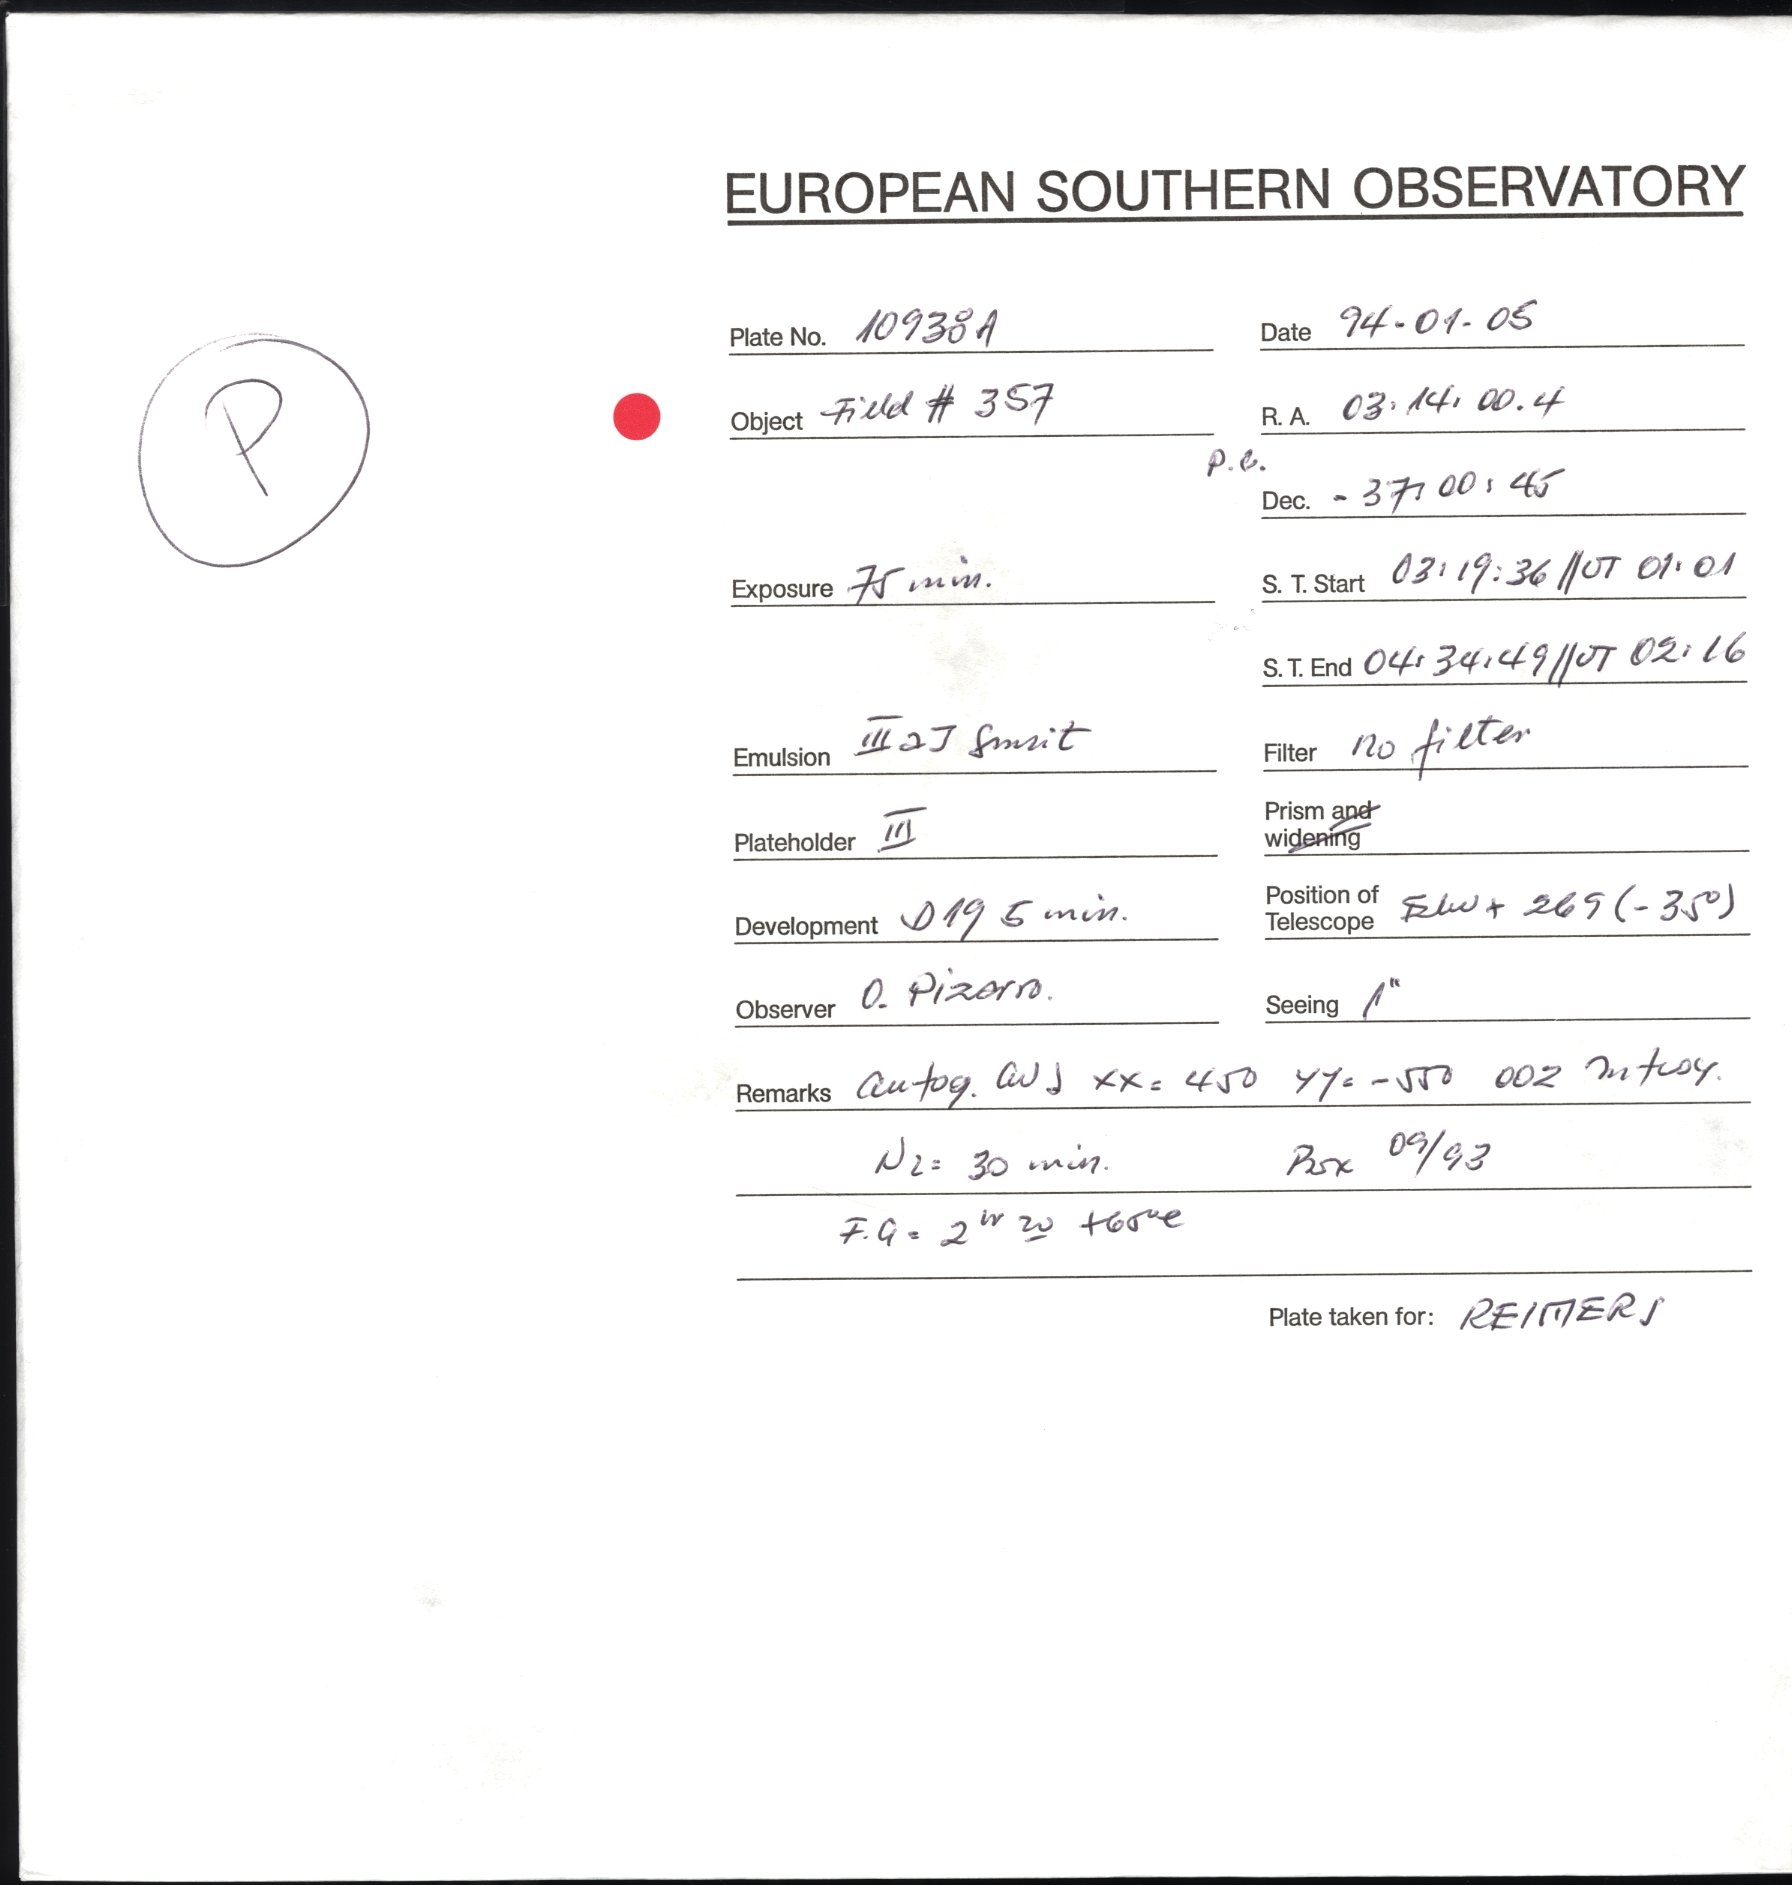 EUROPEAN SOUTHERN OBSERVATORY
Plate No. 10938A Date 94-01-05
P
Object Field # 357 R. A. 03:14:00.4
Dec. -37:00:45
Exposure 75 min. S. T. Start 03:19:36 // UT 01:01
S. T. End 04:34:49 // UT 02:16
Emulsion III aJ Filter no filter
Plateholder III Prism and widening
Development D19 5 min. Position of Telescope + 269 (-35°)
Observer O. Pizarro. Seeing 1"
Remarks autog. adj xx = 450 yy = -550 002
N2 = 30 min. Box 09/93
F.G = 2
Plate taken for: REIMERS